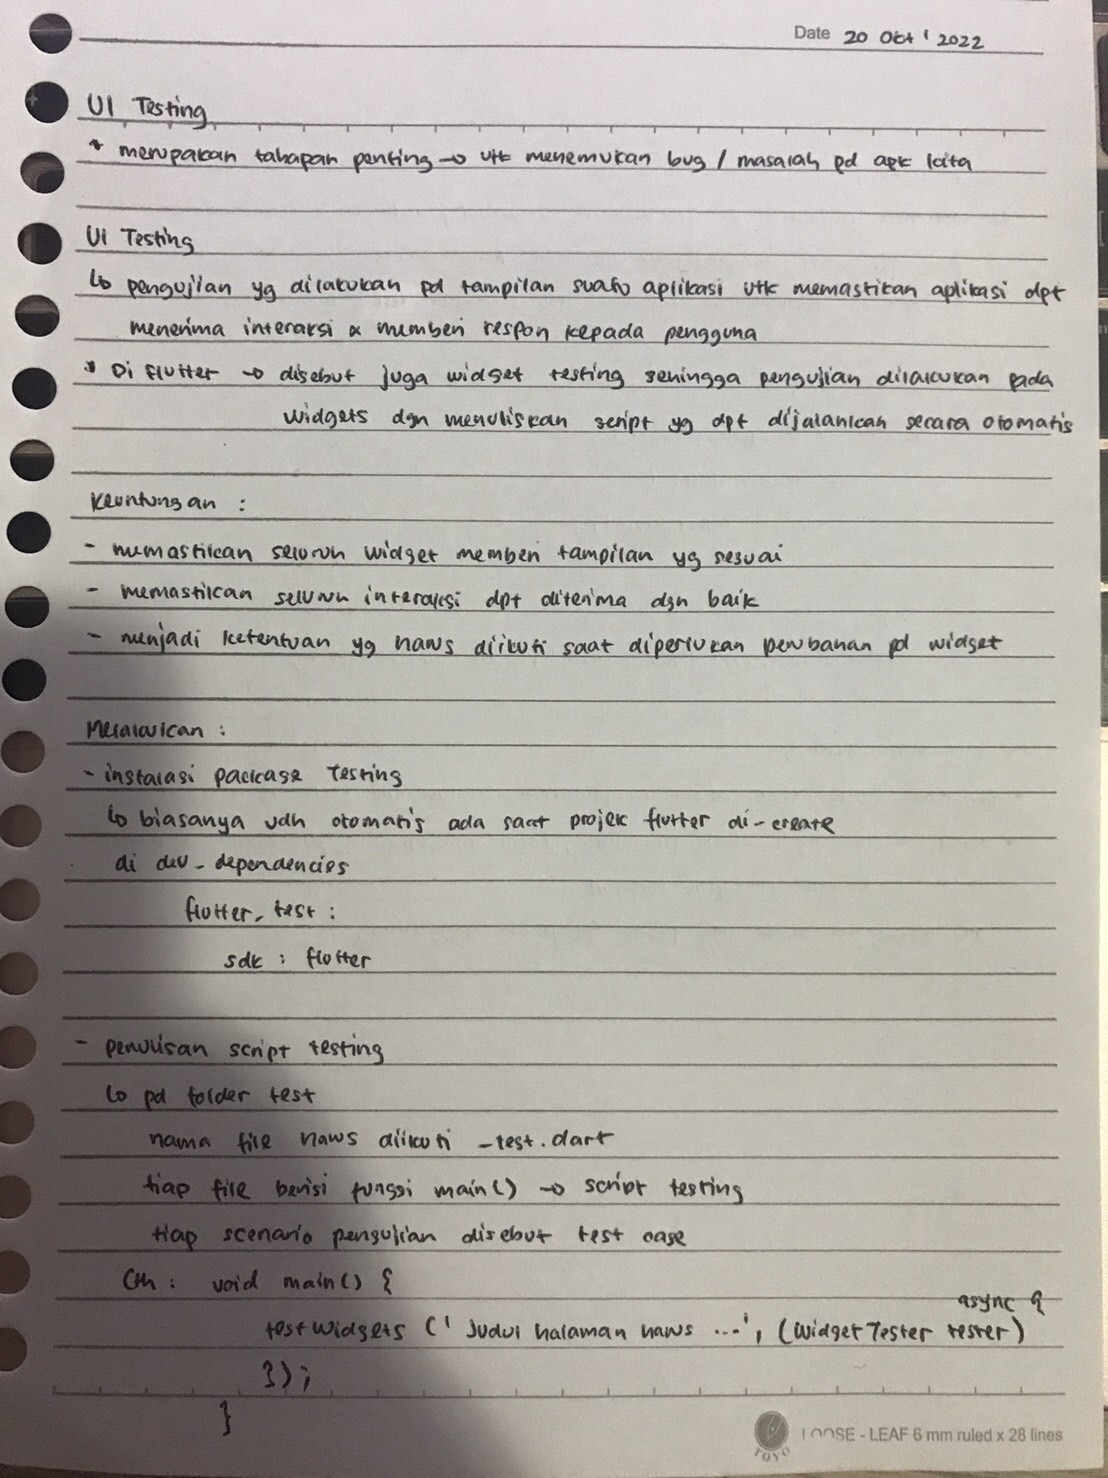 Date 20 Okt ' 2022
UI Testing
* merupakan tahapan penting → utk menemukan bug / masalah pd apk kita
UI Testing
↳ pengujian yg dilakukan pd tampilan suatu aplikasi utk memastikan aplikasi dpt
menerima interaksi & memberi respon kepada pengguna
* Di flutter → disebut juga widget testing sehingga pengujian dilakukan pada
widgets dgn menuliskan script yg dpt dijalankan secara otomatis
Keuntungan :
- memastikan seluruh widget memberi tampilan yg sesuai
- memastikan seluruh interaksi dpt diterima dgn baik
- menjadi ketentuan yg harus diikuti saat diperlukan perubahan pd widget
Melakukan :
- instalasi package Testing
↳ biasanya udh otomatis ada saat projek flutter di-create
di dev_dependencies
flutter_test :
sdk : flutter
- penulisan script testing
↳ pd folder test
nama file harus diikuti _test.dart
tiap file berisi fungsi main() → script testing
tiap scenario pengujian disebut test case
Cth : void main() {
testWidgets (' Judul halaman harus ...', (WidgetTester tester) async {
});
}
LOOSE - LEAF 6 mm ruled x 28 lines
TOYO